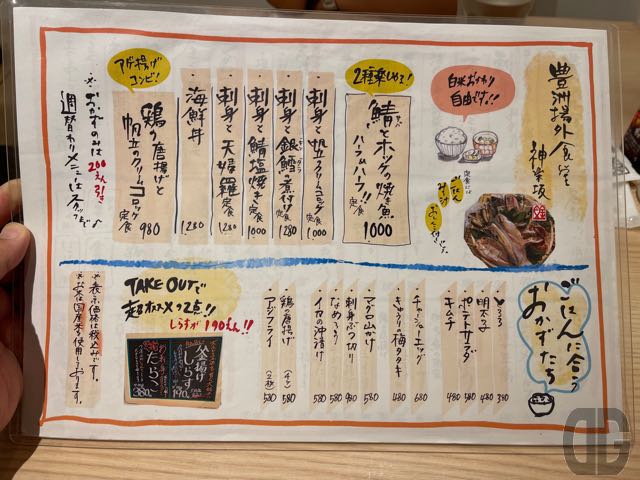 豊洲場外食堂
神楽坂
白米おかわり
自由です!!
定食には
ごはん
みそ汁
2種楽しめる!
鯖とホッケの焼き魚
ハーフ&ハーフ!! 定食
1000
刺身と帆立クリームコロッケ 定食 1000
刺身と銀鱈の煮付け 定食 1280
刺身と鯖塩焼き 定食 1000
刺身と天婦羅 定食 1280
海鮮丼 1280
アゲ揚げ
コンビ!
鶏の唐揚げと
帆立のクリームコロッケ 定食 980
※おかずのみは200えん引き
週替わりメニューはスタッフまで♪
ごはんに合う
おかずたち
とろろ 380
明太子 480
ポテトサラダ 580
キムチ 480
チャーシューエッグ 680
きゅうりの梅タタキ 480
マグロ山かけ 580
刺身ぶつ切り 980
なめろう 580
イカの沖漬け 580
鶏の唐揚げ (4ヶ) 580
アジフライ (2枚) 580
TAKE OUTで
超オススメの2点!!
しらすが190えん!!
釜揚げ
しらす
190
たらこ
380
※表示価格は税込みです。
※お米は国産米を使用しております。
DG